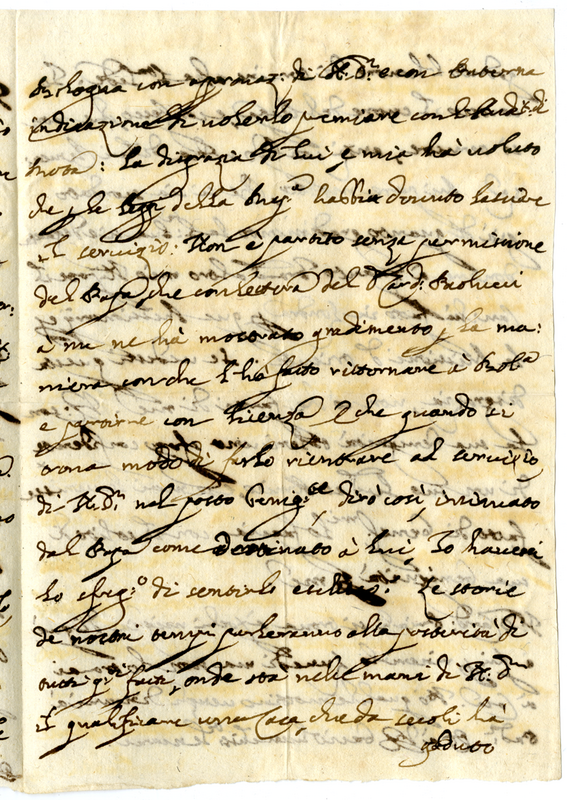 Bologna con approvaz.e di N. S.re e con
indicazione di volerlo premiare con l'
Ruota: La disgrazia di lui, e mia hà voluto
che p. le leggi della habbia dovuto lasciare
il servizio. Non è partito senza permissione
del Papa, che con lettera del S. Card: Paolucci
à me ne hà mostrato gradimento p. la ma:
niera con che l'hà fatto ritornare à Bol.a
e partirne con licenza che quando si
trova modo di farlo rientrare al servizio
di N. S.re nel posto dirò così,
dal Papa come destinato à lui, Io haverei
lo di sentirlo escluso. Le storie
de nostri tempi parleranno alla posterità di
tutti q.ti fatti, onde sta nelle mani di N. S.re
il qualificare una Casa, che da secoli hà
goduto